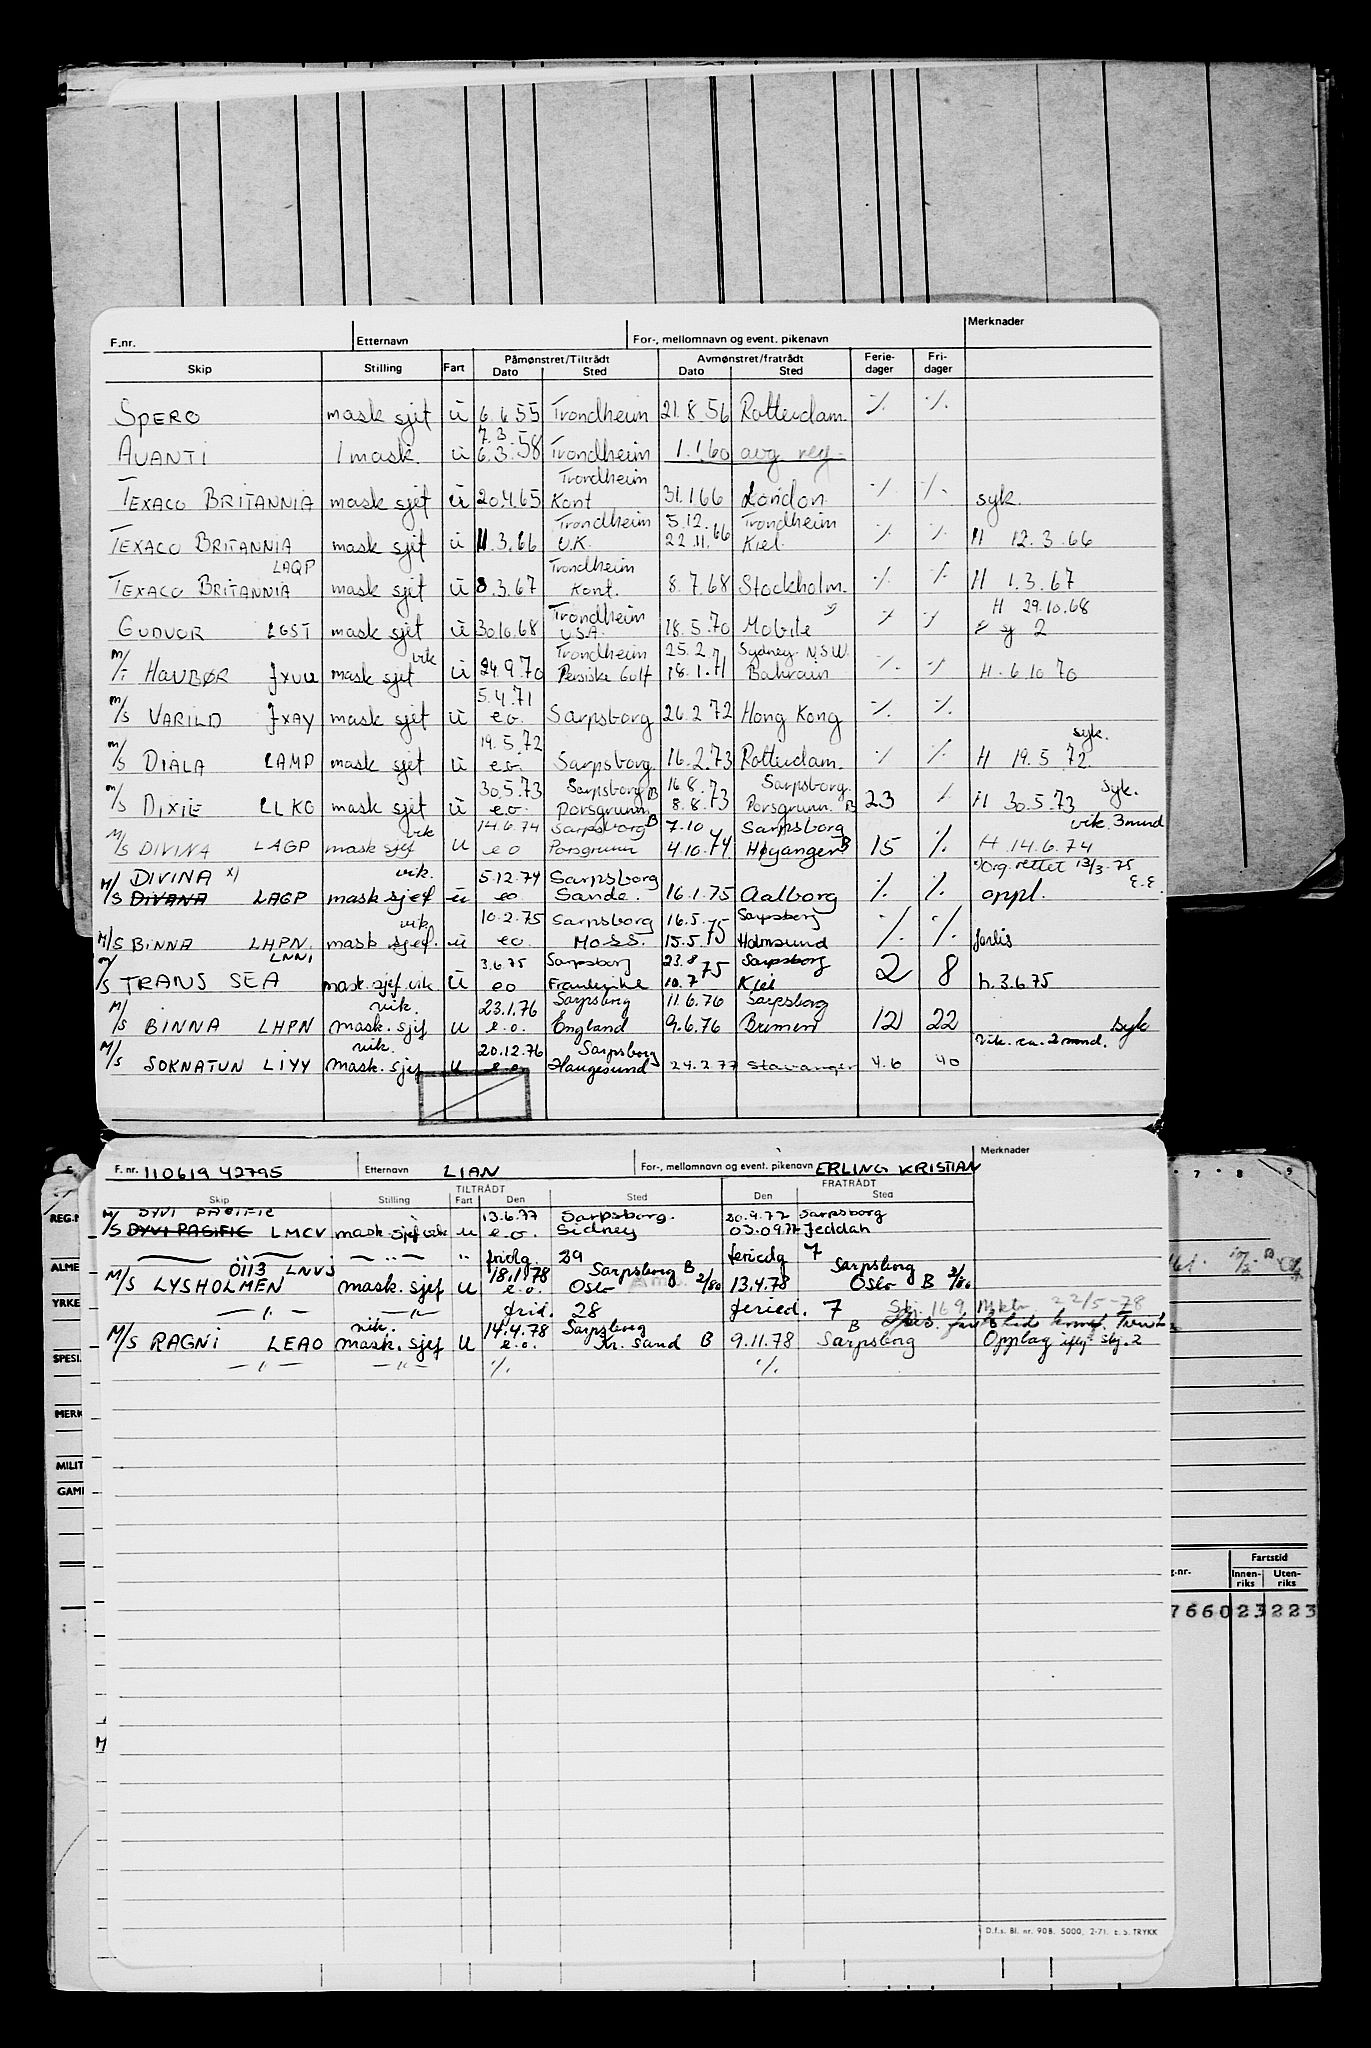 F.nr. Etternavn For-, mellomnavn og event. pikenavn Merknader
Skip Stilling Fart Påmønstret/Tiltrådt Avmønstret/fratrådt Ferie- Fri-
Dato Sted Dato Sted dager dager
SPERO mask sjef u 6.6.55 Trondheim 21.8.56 Rotterdam ⁒ ⁒
7.3.
AVANTI 1 mask. u 6.3.58 Trondheim 1.1.60 avg reg.
Trondheim
TEXACO BRITANNIA mask sjef u 20.4.65 Kont 31.1.66 London ⁒ ⁒ syk.
Trondheim 5.12. Trondheim
TEXACO BRITANNIA mask sjef u 11.3.66 U.K. 22.11.66 Kiel ⁒ ⁒ H 12.3.66
LAQP Trondheim
TEXACO BRITANNIA mask sjef u 8.3.67 Kont. 8.7.68 Stockholm. ⁒ ⁒ H 1.3.67
Trondheim H 29.10.68
GUDVOR LGST mask sjef u 30.10.68 USA. 18.5.70 Mobile ⁒ ⁒ 2
M/T vik Trondheim 25.2. Sydney N.S.W.
HAVBØR JXUU mask sjef u 24.9.70 Persiske Gulf 18.1.71 Bahrain ⁒ ⁒ H. 6.10.70
5.4.71
M/S VARILD JXAY mask sjef u e.o. Sarpsborg 26.2.72 Hong Kong ⁒ ⁒
19.5.72 syk.
M/S DIALA LAMP mask sjef u e.o. Sarpsborg 16.2.73 Rotterdam. ⁒ ⁒ H 19.5.72
30.5.73 Sarpsborg 16.8. Sarpsborg. syk.
M/S DIXIE LLKO mask sjef u e.o. Porsgrunn B 8.8.73 Porsgrunn. B 23 ⁒ H 30.5.73
vik 14.6.74 Sarpsborg B 7.10 Sarpsborg vik. 3mnd
M/S DIVINA LAGP mask sjef u e o Porsgrunn 4.10.74 Høyanger B 15 ⁒ H 14.6.74
DIVINA x) vik. 5.12.74 Sarpsborg x)Org. rettet 13/3-75
M/S DIVANA LAGP mask sjef u eo Sande. 16.1.75 Aalborg ⁒ ⁒ oppl. E.E.
vik 10.2.75 Sarpsborg 16.5. Sarpsborg
M/S BINNA LHPN. mask sjef. u eo. MOSS. 15.5.75 Holmsund ⁒ ⁒ forlis
LNNI 3.6.75 Sarpsborg 23.8 Sarpsborg
M/S TRANS SEA mask. sjef. vik u eo Frankrike 10.7 75 Kiel 2 8 h. 3.6.75
vik. 23.1.76 Sarpsborg 11.6.76 Sarpsborg
M/S BINNA LHPN mask. sjef u e.o. England 9.6.76 Bremen 12 22 syk
vik. 20.12.76 Sarpsborg vik. ca. 2 mnd.
M/S SOKNATUN LIYY mask. sjef u e.o. Haugesund 24.2.77 Stavanger 4.6 40
F. nr. 110619 42795 Etternavn LIAN For-, mellomnavn og event. pikenavn ERLING KRISTIAN Merknader
TILTRÅDT FRATRÅDT
Skip Stilling Fart Den Sted Den Sted
DYVI PACIFIC 13.6.77 Sarpsborg. 20.9.77 Sarpsborg
M/S DYVI PASIFIC LMCV mask sjef vik u e.o. Sidney 03.09.77 Jeddah
fridg 39 feriedg 7
Ö113 LNVJ 18.1.78 Sarpsborg B Sarpsborg
M/S LYSHOLMEN mask. sjef u e.o. Oslo 2/80 13.4.78 Oslo B 3/80
frid. 28 feried. 7 22/5-78
vik. 14.4.78 Sarpsborg B
M/S RAGNI LEAO mask. sjef u e.o. Kr. Sand B 9.11.78 Sarpsborg Opplag iflg skj. 2
⁒ ⁒
D.f.s. Bl. nr. 90B. 5000, 2-71. E.S. TRYKK
REG.N
ALME
YRKE
SPESI.
MERK
MILIT
GAM
7 8 9
Fartstid
Innen- Uten-
riks riks
766023223